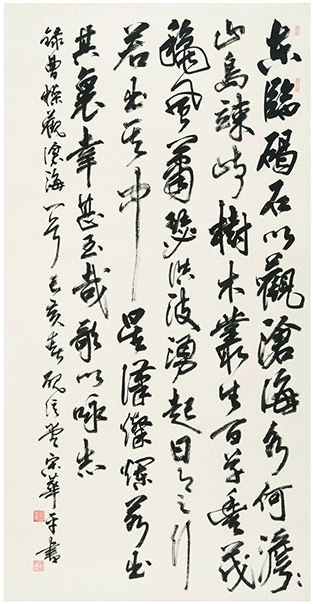 东臨碣石以觀滄海水何澹〻
山島竦峙樹木叢生百草豐茂
穐風蕭瑟洪波湧起日月之行
若出其中星漢燦爛若出
其裏幸甚至哉歌以咏志
錄曹操觀滄海一首己亥春硯堂宗華書